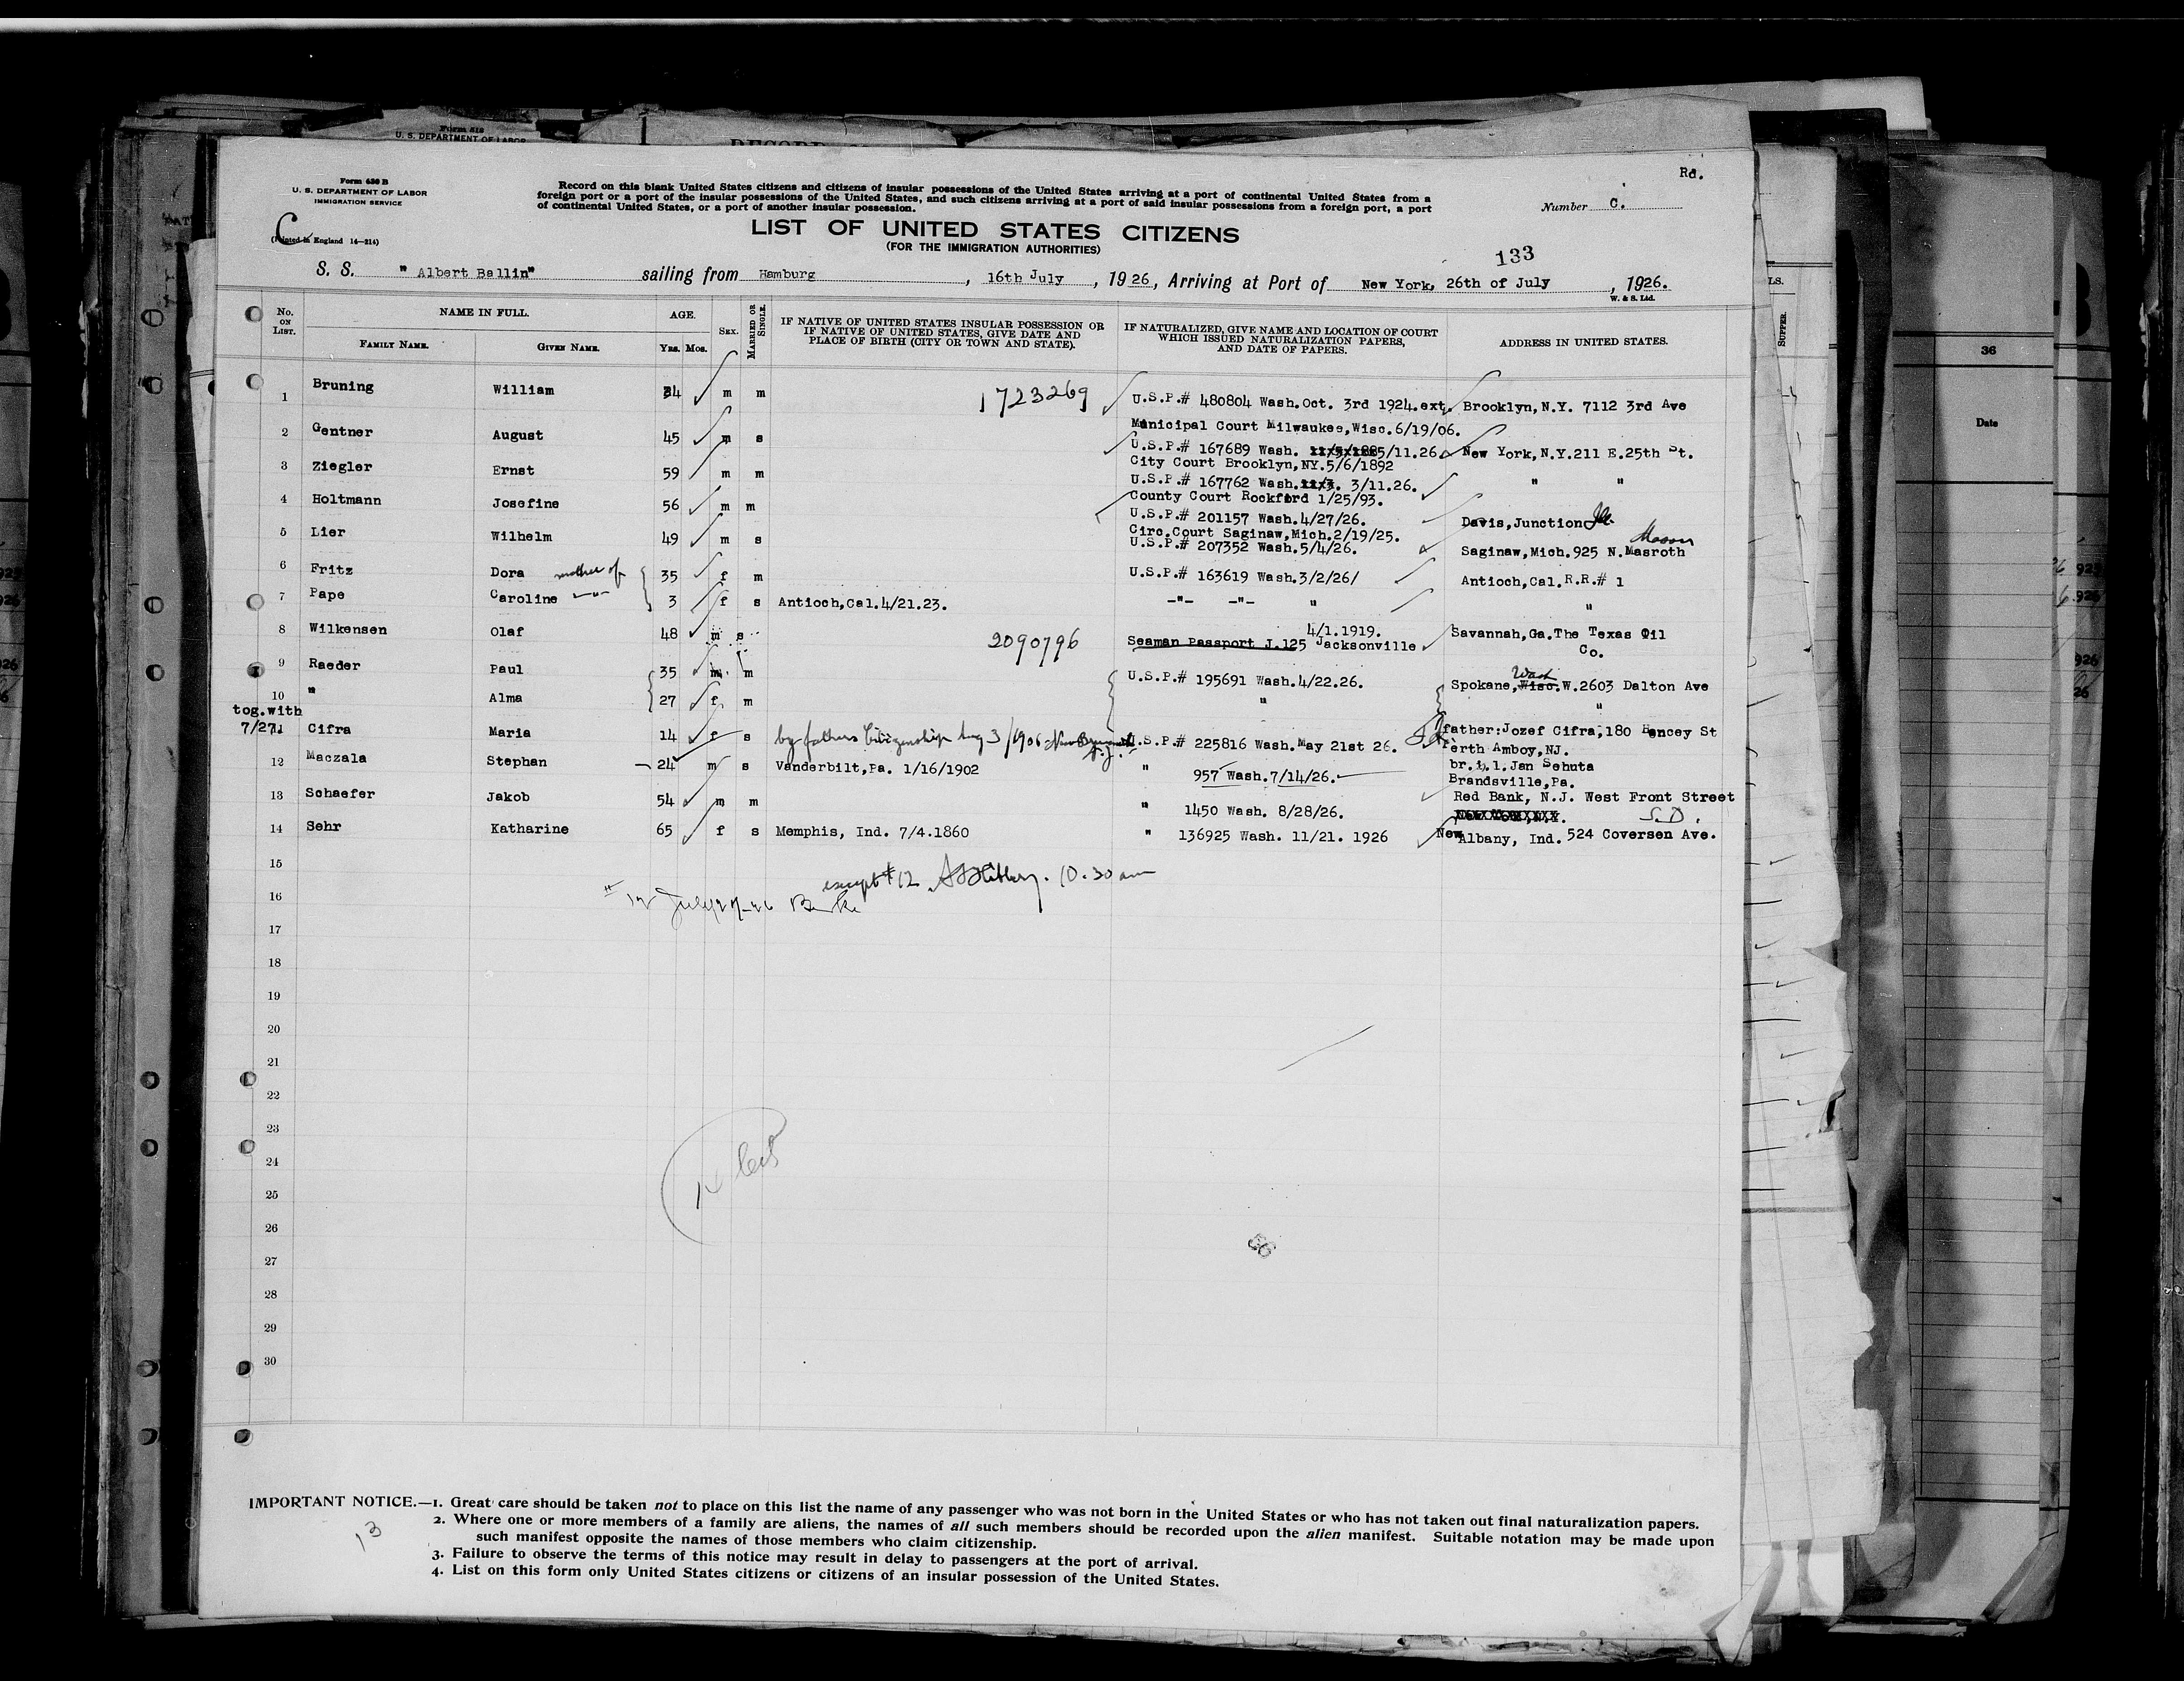 Form 630 B
U. S. DEPARTMENT OF LABOR
IMMIGRATION SERVICE
(Printed in England 14—214)
Record on this blank United States citizens and citizens of insular possessions of the United States arriving at a port of continental United States from a
foreign port or a port of the insular possessions of the United States, and such citizens arriving at a port of said insular possessions from a foreign port, a port
of continental United States, or a port of another insular possession.
Rd.
Number C.
LIST OF UNITED STATES CITIZENS
(FOR THE IMMIGRATION AUTHORITIES)
133
S. S. "Albert Ballin" sailing from Hamburg, 16th July, 1926, Arriving at Port of New York, 26th of July, 1926.
W. & S. Ltd.
No. ON LIST. NAME IN FULL. AGE. SEX. MARRIED OR SINGLE. IF NATIVE OF UNITED STATES INSULAR POSSESSION OR IF NATIVE OF UNITED STATES, GIVE DATE AND PLACE OF BIRTH (CITY OR TOWN AND STATE). IF NATURALIZED, GIVE NAME AND LOCATION OF COURT WHICH ISSUED NATURALIZATION PAPERS, AND DATE OF PAPERS. ADDRESS IN UNITED STATES.
FAMILY NAME. GIVEN NAME. YRS. MOS.
1 Bruning William 34 m m 1723269 U.S.P.# 480804 Wash.Oct. 3rd 1924.ext. Brooklyn,N.Y. 7112 3rd Ave
Municipal Court Milwaukee,Wisc.6/19/06.
2 Gentner August 45 m s U.S.P.# 167689 Wash. 5/11.26. New York,N.Y.211 E.25th St.
City Court Brooklyn,NY.5/6/1892
3 Ziegler Ernst 59 m m U.S.P.# 167762 Wash. 3/11.26. " "
County Court Rockford 1/25/93.
4 Holtmann Josefine 56 m m U.S.P.# 201157 Wash.4/27/26. Davis,Junction Ill.
Circ.Court Saginaw,Mich.2/19/25.
5 Lier Wilhelm 49 m s U.S.P.# 207352 Wash.5/4/26. Saginaw,Mich.925 N.Masroth Mason
6 Fritz Dora mother of 35 f m U.S.P.# 163619 Wash.3/2/26/ Antioch,Cal.R.R.# 1
7 Pape Caroline 3 f s Antioch,Cal.4/21.23. -"- -"- " "
8 Wilkensen Olaf 48 m s 2090796 4/1.1919. Savannah,Ga.The Texas Oil
Seaman Passport J.125 Jacksonville Co.
9 Raeder Paul 35 m m U.S.P.# 195691 Wash.4/22.26. Spokane,Wisc.W.2603 Dalton Ave
Wash
10 " Alma 27 f m " "
tog.with
7/27. 11 Cifra Maria 14 f s by fathers Citizenship Aug 3/1906 New Brunswick N.J. U.S.P.# 225816 Wash.May 21st 26. father:Jozef Cifra,180 Hancey St
Perth Amboy,NJ.
12 Maczala Stephan 24 m s Vanderbilt,Pa. 1/16/1902 " 957 Wash.7/14/26. br.i.l.Jan Sehuta
Brandsville,Pa.
13 Schaefer Jakob 54 m m " 1450 Wash. 8/28/26. Red Bank, N.J. West Front Street
S.D.
14 Sehr Katharine 65 f s Memphis, Ind. 7/4.1860 " 136925 Wash. 11/21. 1926 New Albany, Ind. 524 Coversen Ave.
15
except #12 10.30 am
16
" 12 July 27-26 Burke
17
18
19
20
21
22
23
24
25
26
27
28
29
30
IMPORTANT NOTICE.—1. Great care should be taken not to place on this list the name of any passenger who was not born in the United States or who has not taken out final naturalization papers.
2. Where one or more members of a family are aliens, the names of all such members should be recorded upon the alien manifest. Suitable notation may be made upon
such manifest opposite the names of those members who claim citizenship.
3. Failure to observe the terms of this notice may result in delay to passengers at the port of arrival.
4. List on this form only United States citizens or citizens of an insular possession of the United States.
13
Form 618
U. S. DEPARTMENT OF LABOR
SUPPER.
36
Date